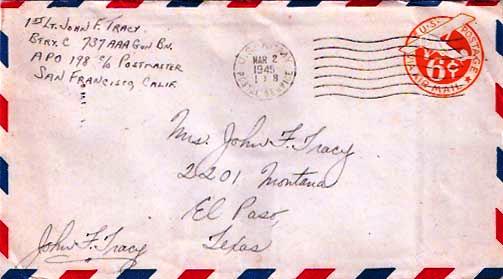 1st Lt. John F. Tracy
Btry. C 737 AAA Gun Bn.
APO 198 c/o Postmaster
San Francisco, Calif.
U.S. ARMY
MAR 2
1945
POSTAL SERVICE
U.S. POSTAGE
6¢
VIA AIR MAIL
Mrs. John F. Tracy
2201 Montana
El Paso,
Texas
John F. Tracy